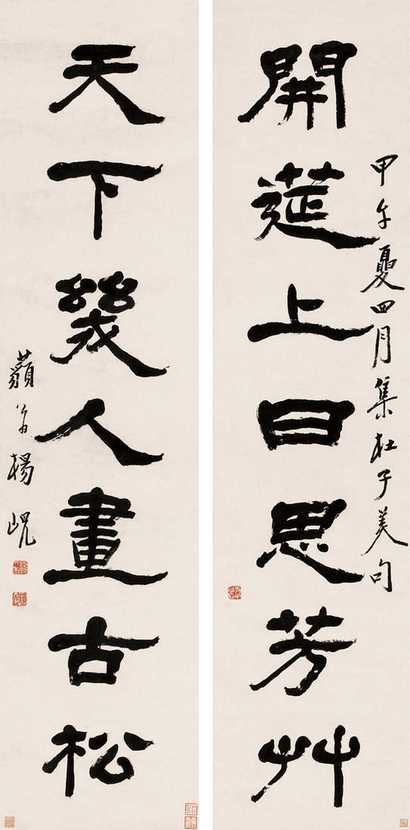 開筵上日思芳艸
甲午夏四月集杜子美句
天下幾人畫古松
藐翁楊峴